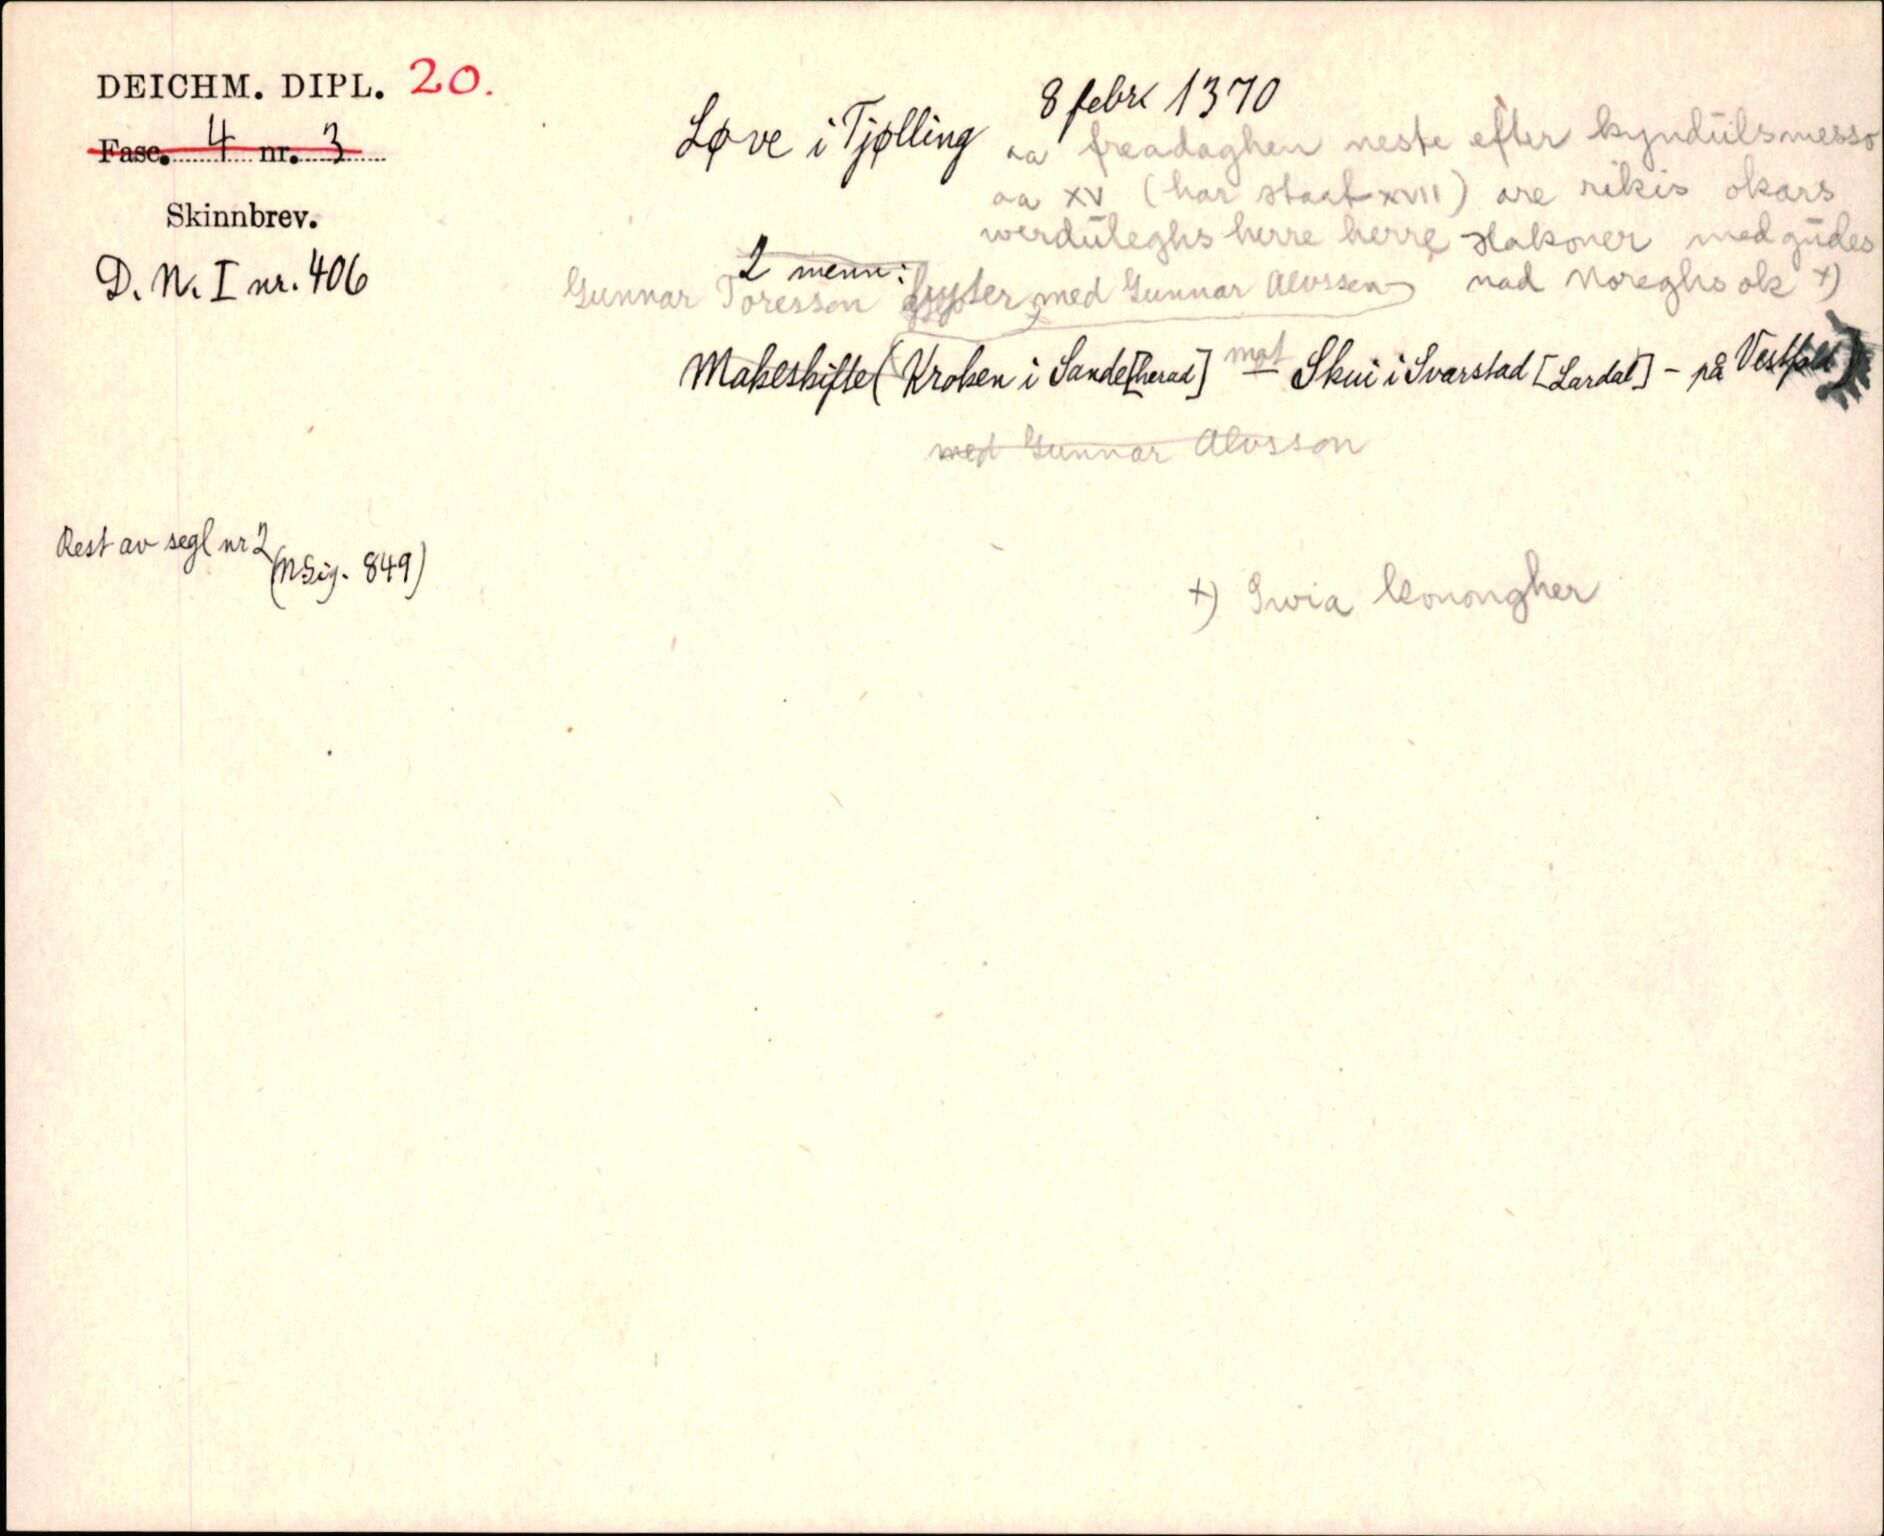 DEICHM. DIPL. 20.
Fasc. 4 nr. 3
Skinnbrev.
D. N. I nr. 406
8 febr 1370
Løve i Tjølling
aa freadaghen neste efter kyndülsmesso
aa XV (har staat XVII) are rikis okars
werdüleghs herre herre Hakoner med güdes
nad Noreghs ok +)
2 menn:
Gunnar Toresson byter med Gunnar Alvssen
Makeskifte (Kroken i Sande[herad] mot Skui i Svarstad [Lardal] - på Vestfold)
med Gunnar Alvsson
Rest av segl nr 2
(NSig. 849)
+) Swia konongher